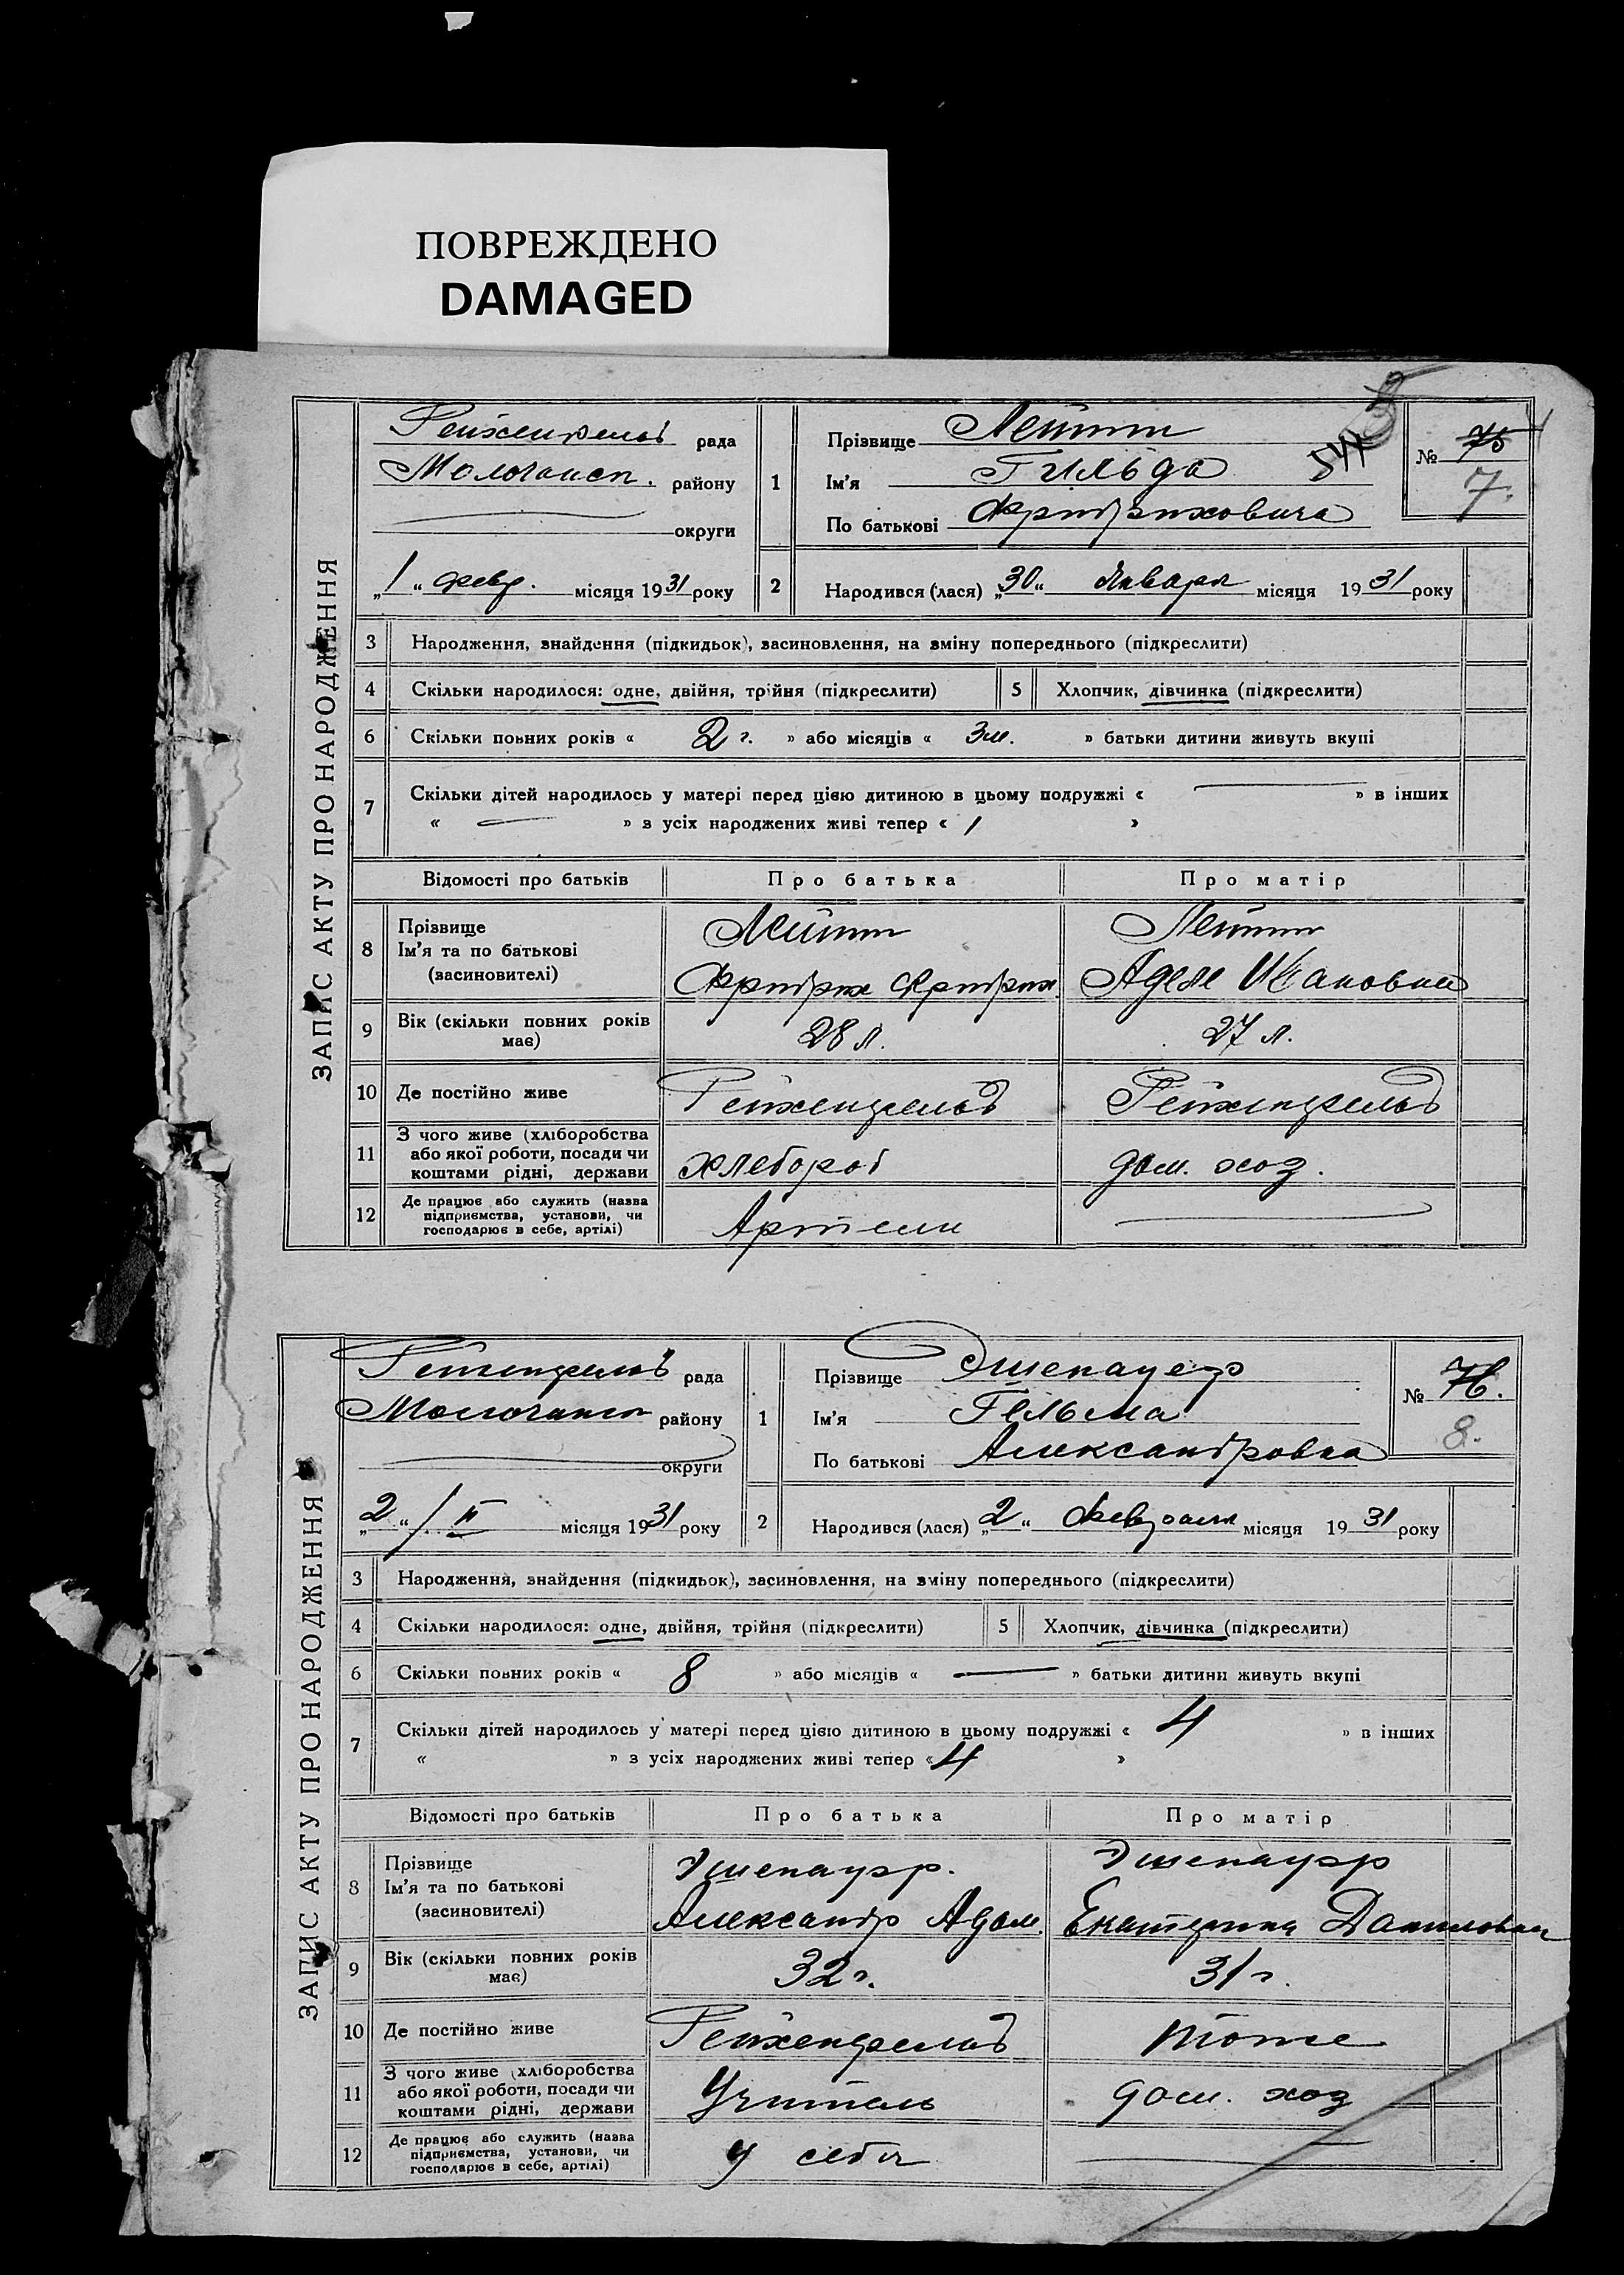 ПОВРЕЖДЕНО
DAMAGED
ЗАПИС АКТУ ПРО НАРОДЖЕННЯ
Рейхенфельд рада
Молочанск. району
округи
„1“ февр. місяця 1931 року
1
Прізвище Лейтт
Ім'я Гильда
По батькові Фридриховича
544
№ 75
7.
2 Народився (лася) „30“ Января місяця 1931 року
3 Народження, знайдення (підкидьок), засиновлення, на зміну попереднього (підкреслити)
4 Скільки народилося: одне, двійня, трійня (підкреслити) 5 Хлопчик, дівчинка (підкреслити)
6 Скільки повних років « 2 г. » або місяців « 3 м. » батьки дитини живуть вкупі
7 Скільки дітей народилось у матері перед цією дитиною в цьому подружжі « — » в інших
« — » з усіх народжених живі тепер « 1 »
Відомості про батьків Про батька Про матір
8 Прізвище Лейтт Лейтт
Ім'я та по батькові
(засновителі) Фридрих Фридрих. Аделе Ивановна
9 Вік (скільки повних років має) 28 л. 27 л.
10 Де постійно живе Рейхенфельд Рейхенфельд
11 З чого живе (хліборобства або якої роботи, посади чи коштами рідні, держави хлебороб дом. хоз.
12 Де працює або служить (назва підприємства, установи, чи господарює в себе, артілі) Артели —
ЗАПИС АКТУ ПРО НАРОДЖЕННЯ
Рейхенфельд рада
Молочанск району
округи
„2“ / II місяця 1931 року
1
Прізвище Эшепауер
Ім'я Гельма
По батькові Александровна
№ 76.
8.
2 Народився (лася) „2“ Февраля місяця 1931 року
3 Народження, знайдення (підкидьок), засиновлення, на зміну попереднього (підкреслити)
4 Скільки народилося: одне, двійня, трійня (підкреслити) 5 Хлопчик, дівчинка (підкреслити)
6 Скільки повних років « 8 » або місяців « — » батьки дитини живуть вкупі
7 Скільки дітей народилось у матері перед цією дитиною в цьому подружжі « 4 » в інших
« » з усіх народжених живі тепер « 4 »
Відомості про батьків Про батька Про матір
8 Прізвище Эшепауэр. Эшепауэр
Ім'я та по батькові
(засиновителі) Александр Адам. Екатерина Даниловна
9 Вік (скільки повних років має) 32 г. 31 г.
10 Де постійно живе Рейхенфельд тоже
11 З чого живе (хліборобства або якої роботи, посади чи коштами рідні, держави Учитель дом. хоз
12 Де працює або служить (назва підприємства, установи, чи господарює в себе, артілі) у себя —